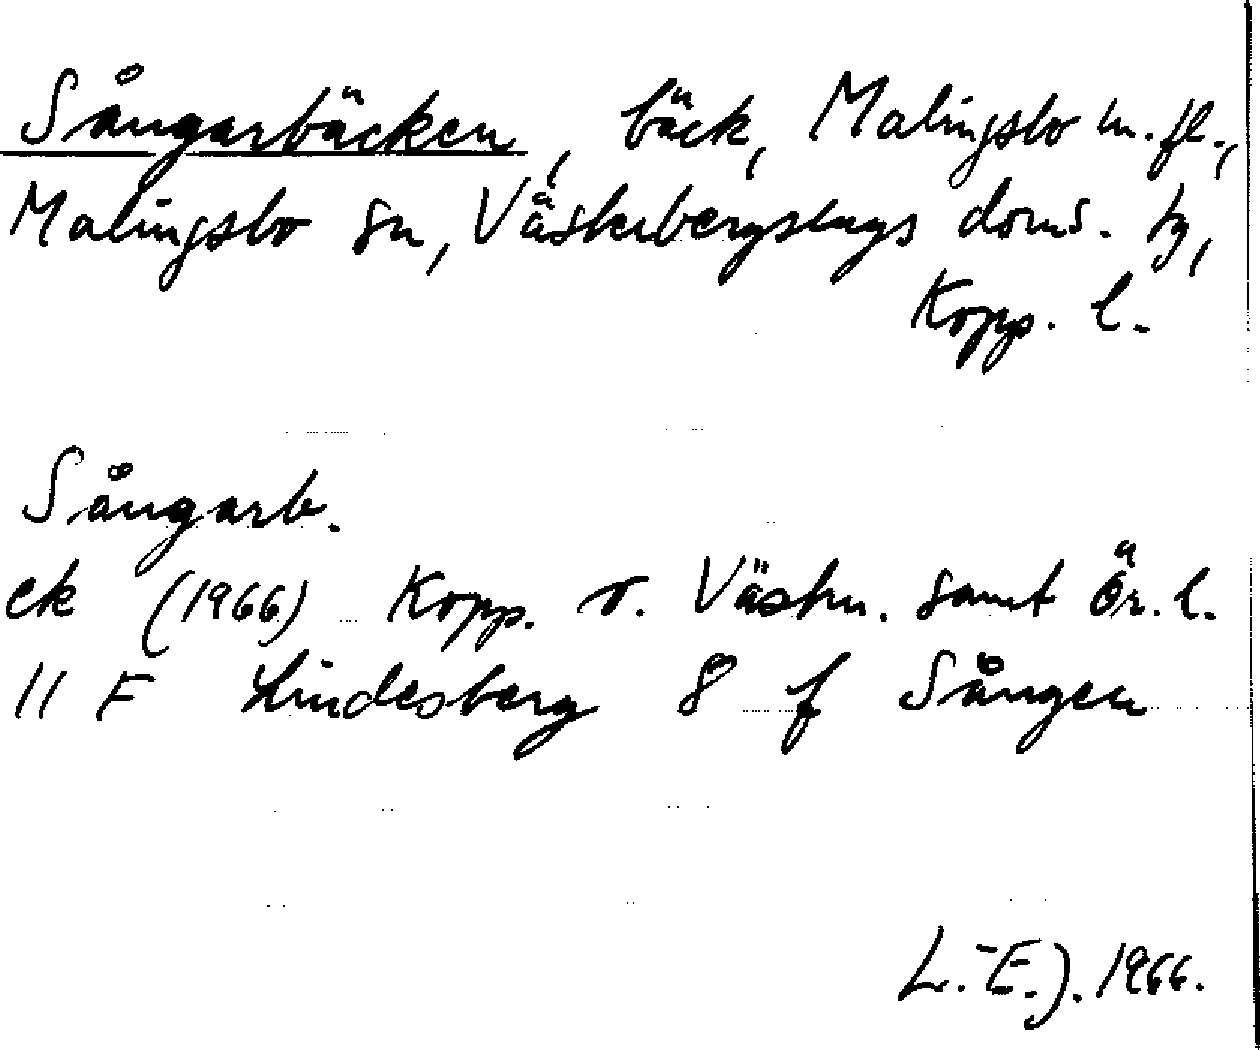 Sångarbäcken, bäck, Malingsbo m.fl.,
Malingsbo sn, Västerbergslags doms. tg,
Kopp. l.
Sångarb.
ek (1966) Kopp. o. Västm. samt Ör. l.
11 F Lindesberg 8 f Sången
L.-E. J. 1966.